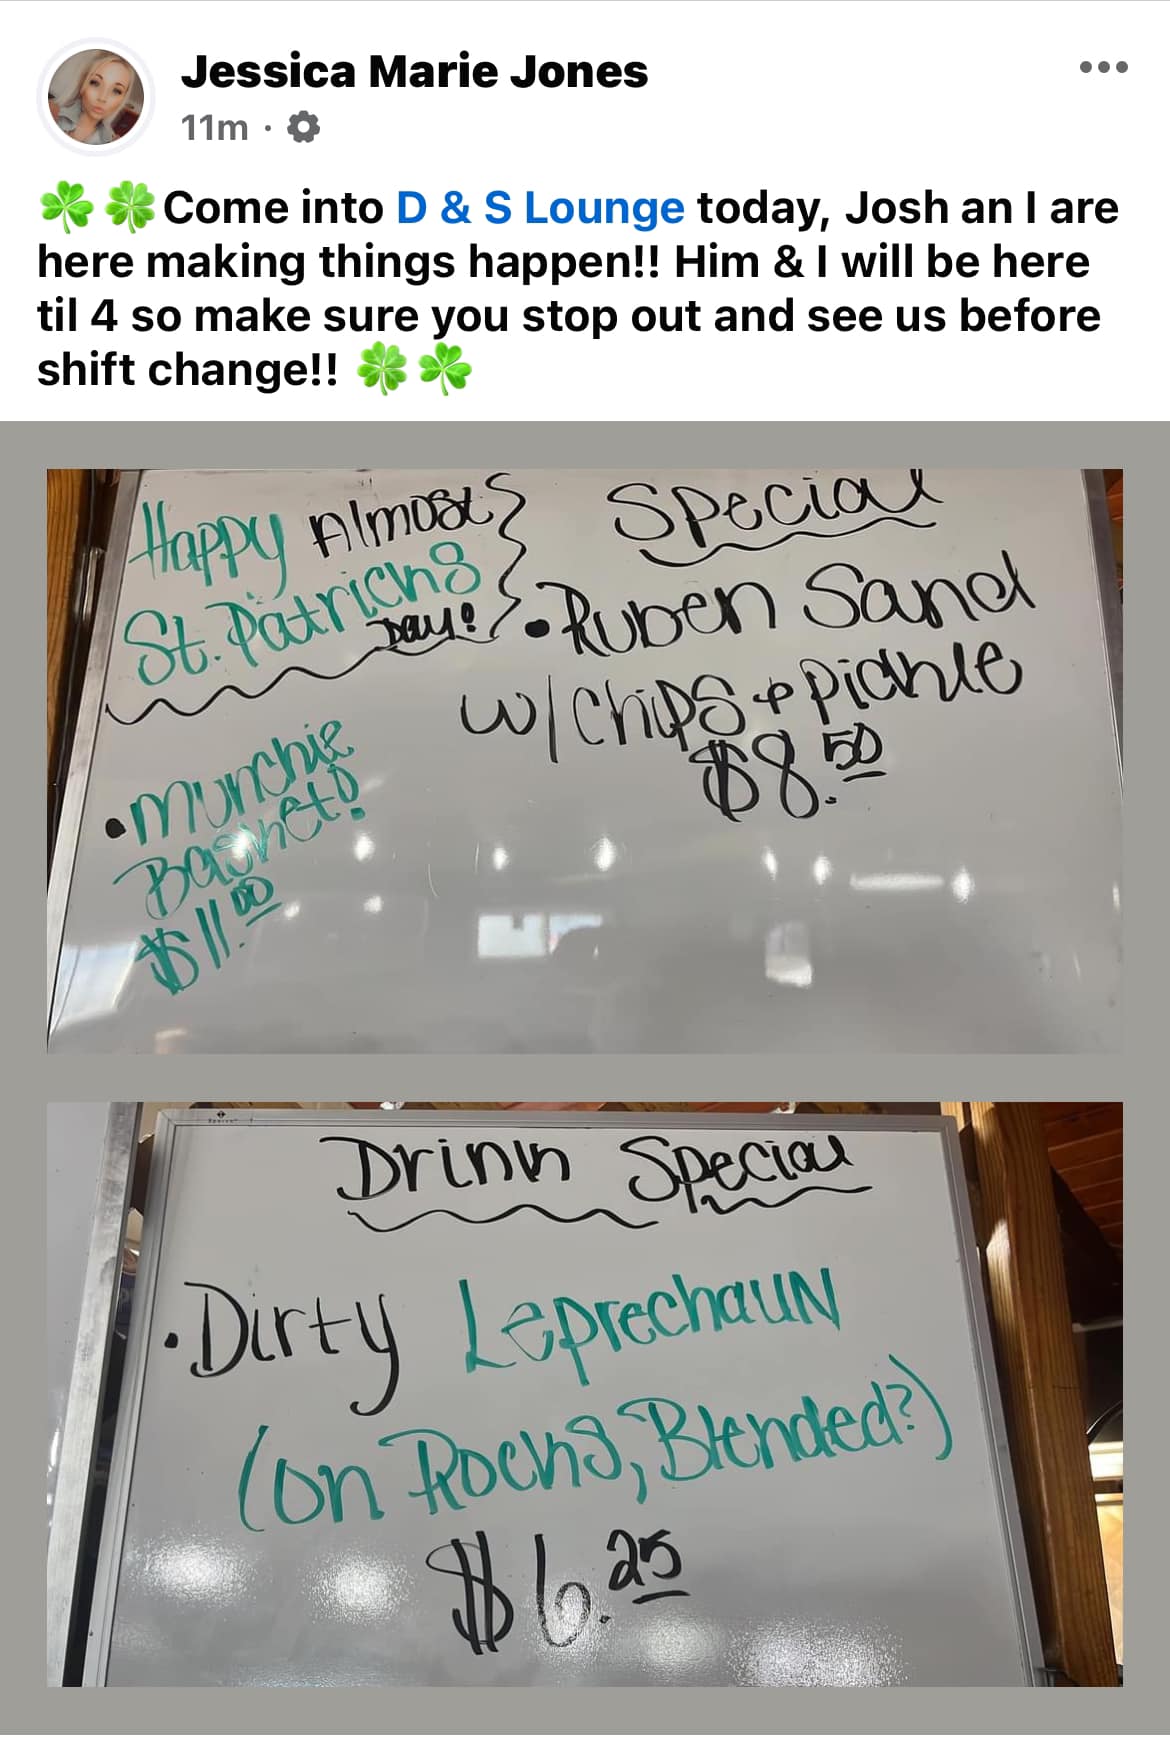 Jessica Marie Jones
11m
☘️🍀Come into D & S Lounge today, Josh an I are
here making things happen!! Him & I will be here
til 4 so make sure you stop out and see us before
shift change!! 🍀☘️
Happy Almost
St. Patricks
Day!
• Munchie
Basket!
$11.00
Special
• Ruben Sand
w/ Chips & Pickle
$8.50
Drink Special
• Dirty Leprechaun
(on Rocks, Blended?)
$6.25